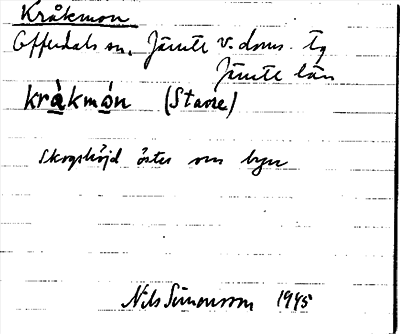 Kråkmon
Offerdals sn. Jämtl v. doms. tg
Jämtl län
kråkmón (Stavre)
Skogshöjd öster om byn
Nils Simonsson 1945